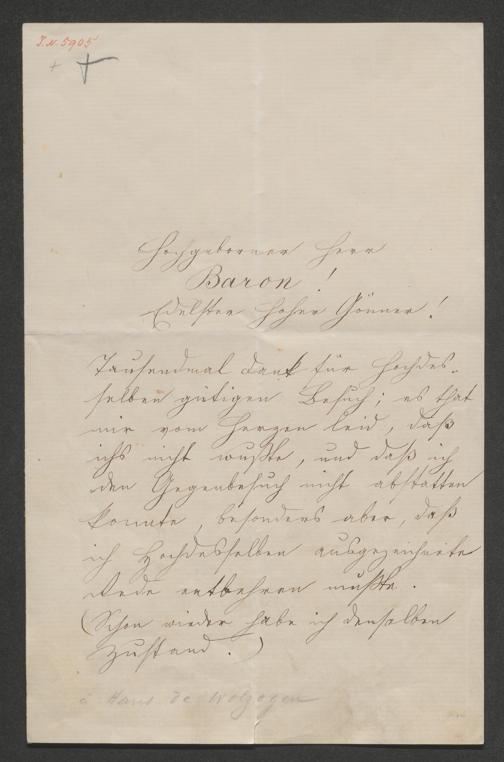 I.N. 5905
Hochgeborner Herr
Baron!
Edelster hoher Gönner!
Tausendmal Dank für Hochdes-
selben gütigen Besuch; es that
mir vom Herzen leid, daß
ichs nicht wußte, und daß ich
den Gegenbesuch nicht abstatten
konnte, besonders aber, daß
ich Hochdesselben ausgezeichnete
Rede entbehren mußte.
(Schon wieder habe ich denselben
Zustand.)
à Hans de Wolzogen